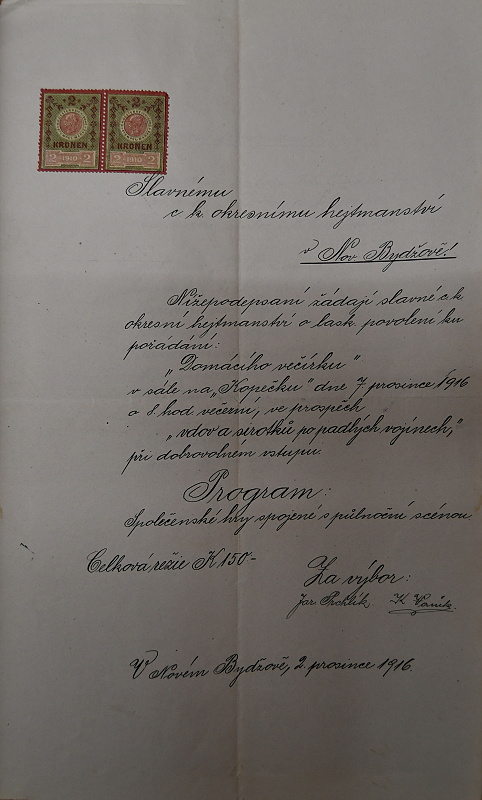 2 2
KRONEN KRONEN
2 1910 2 2 1910 2
Slavnému
c k. okresnímu hejtmanství
v Nov. Bydžově!
Nížepodepsaní žádají slavné c.k.
okresní hejtmanství o lask. povolení ku
pořádání:
„Domácího večírku"
v sále na „Kopečku" dne 7. prosince 1916
o 8. hod. večerní, ve prospěch
„vdov a sirotků po padlých vojínech,"
při dobrovolném vstupu.
Program:
Společenské hry spojené s půlnoční scénou.
Celková režie K 150·-
Za výbor:
Jar. K.
V Novém Bydžově, 2. prosince 1916.